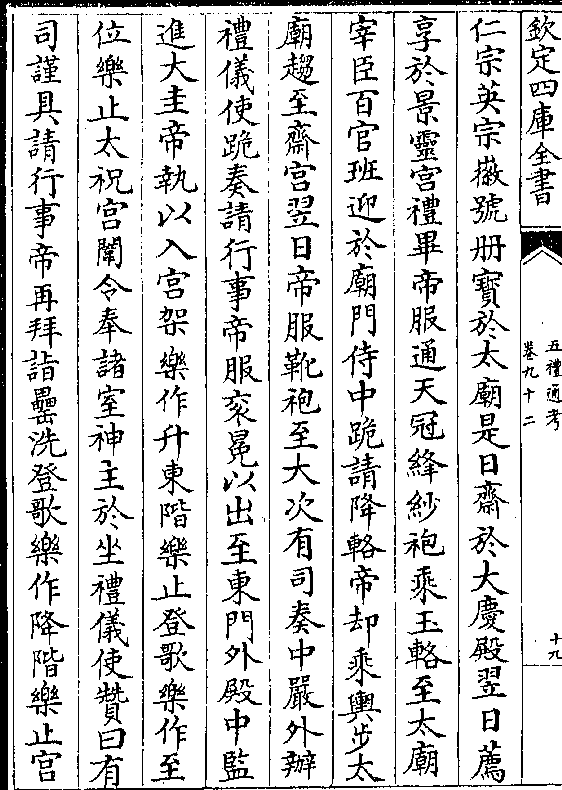 欽定四庫全書
五禮通考
卷九十二
十九
仁宗英宗徽號册寶於太廟是日齋於大慶殿翌日薦
享於景靈宮禮畢帝服通天冠絳紗袍乘玉輅至太廟
宰臣百官班迎於廟門侍中跪請降輅帝却乘輿步太
廟趨至齋宮翌日帝服靴袍至大次有司奏中嚴外辦
禮儀使跪奏請行事帝服衮冕以出至東門外殿中監
進大圭帝執以入宮架樂作升東階樂止登歌樂作至
位樂止太祝宮闈令奉諸室神主於坐禮儀使贊曰有
司謹具請行事帝再拜詣罍洗登歌樂作降階樂止宮